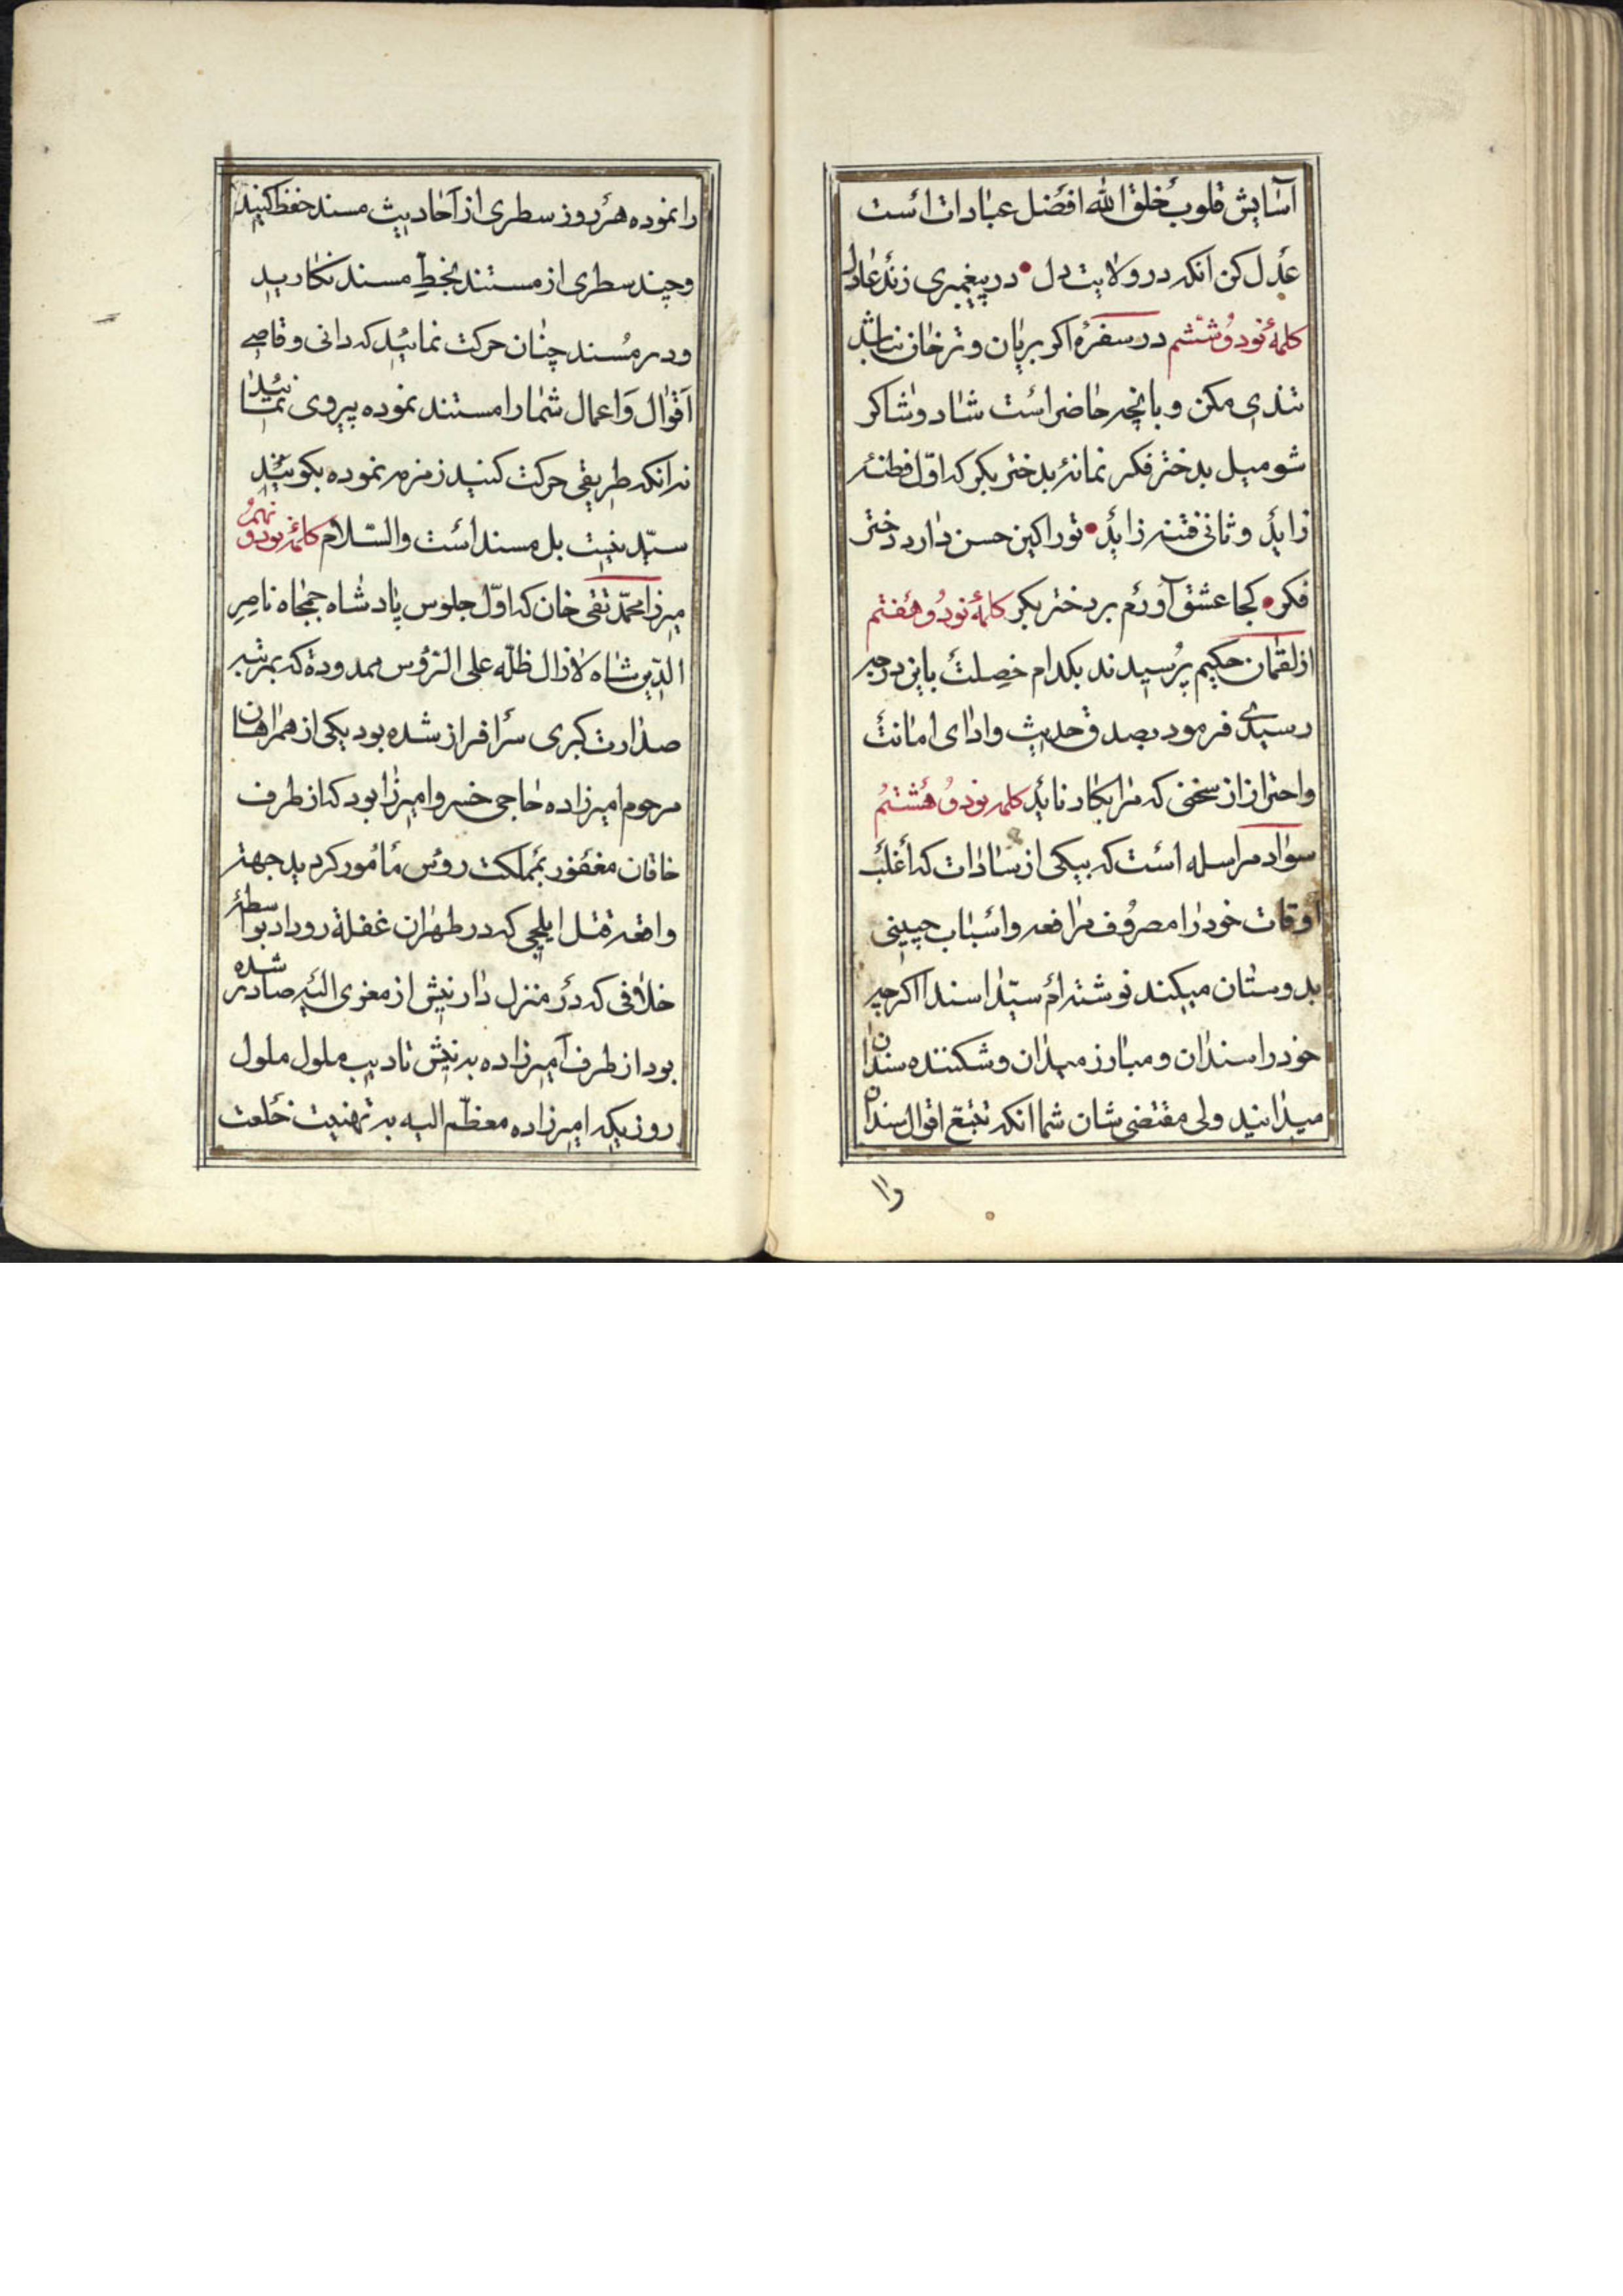 آسایش قلوب خلق الله افضل عبادات است
عدل کن انکه در ولایت دل • در پیغمبری زند عادل
کلمهٔ نود و ششم در سفرهٔ اکر بریان و ترخان نباشد
تندی مکن و بانچه حاضر است شاد و شاکر
شو میل بدختر فکر نما نه بدختر بکر که اوّل فطنه
زاید و ثانی فتنه زاید • تورا کین حسن دارد دختر
فکر • کجا عشق آورم بر دختر بکر کلمهٔ نود و هفتم
از لقمان حکیم پرسیدند بکدام خصلت باین درجه
رسیدی فرمود بصدق حدیث و ادای امانت
و احتراز از سخنی که مرا بکار ناید کلمه نود و هشتم
سواد مراسله است که بیکی از سادات که اغلب
اوقات خود را مصروف مرافعه و اسباب چینی
بدوستان میکند نوشته ام سیّدا سندا اکرچه
خود را سندان و مبارز میدان و شکننده سندان
میدانید ولی مقتضی شان شما انکه تتبع اقوال سنداه
وا
را نموده هر روز سطری از احادیث مسند حفظ کنید
و چند سطری از مستند بخطّ مسند نکارید
و در مسند چنان حرکت نمائید که دانی و قاصی
اقوال و اعمال شما را مستند نموده پیروی نمایند
نه انکه طریقی حرکت کنید زمزمه نموده بکویند
سیّد نیست بل مسند است والسّلام کلمهٔ نود و نهم
میرزا محمّد تقی خان که اوّل جلوس پادشاه جمجاه ناصر
الدّین شاه لازال ظلّه علی الرؤس ممدودة که بمرتبه
صدارت کبری سرافراز شده بود یکی از همراهان
مرحوم امیرزاده حاجی خسرو امیرزا بود که از طرف
خاقان مغفور بمملکت روس مأمور کردید جهة
واقعه قتل ایلچی که در طهران غفلة روداد بواسطهٔ
خلافی که در منزل دارنیش از معزی الیه صادر شده
بود از طرف امیرزاده به نیش تادیب ملول ملول
روزیکه امیرزاده معظّم الیه به تهنیت خلعت